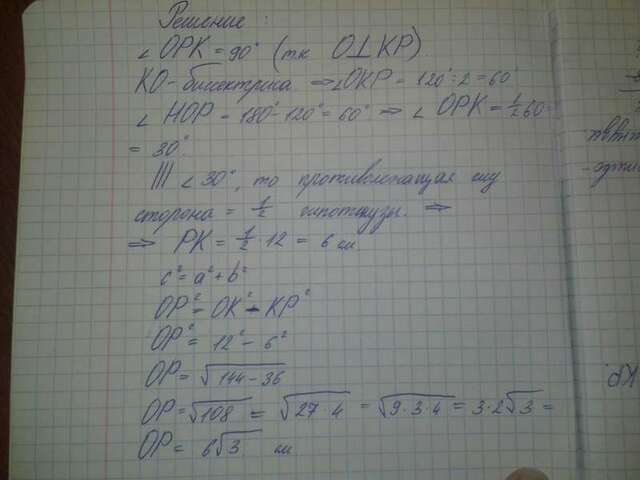 Решение:
∠ OPK = 90° (т.к O⊥KP)
KO - биссектриса ⇒ ∠OKP = 120° : 2 = 60°
∠ HOP = 180° - 120° = 60° ⇒ ∠ OPK = 1/2 60 =
= 30°.
∠ 30°, то противолежащая ему
сторона = 1/2 гипотенузы. ⇒
⇒ PK = 1/2 · 12 = 6 см.
c² = a² + b²
OP² = OK² - KP²
OP² = 12² - 6²
OP = √144 - 36
OP = √108 = √27 · 4 = √9 · 3 · 4 = 3 · 2√3 =
OP = 6√3 см
KP.